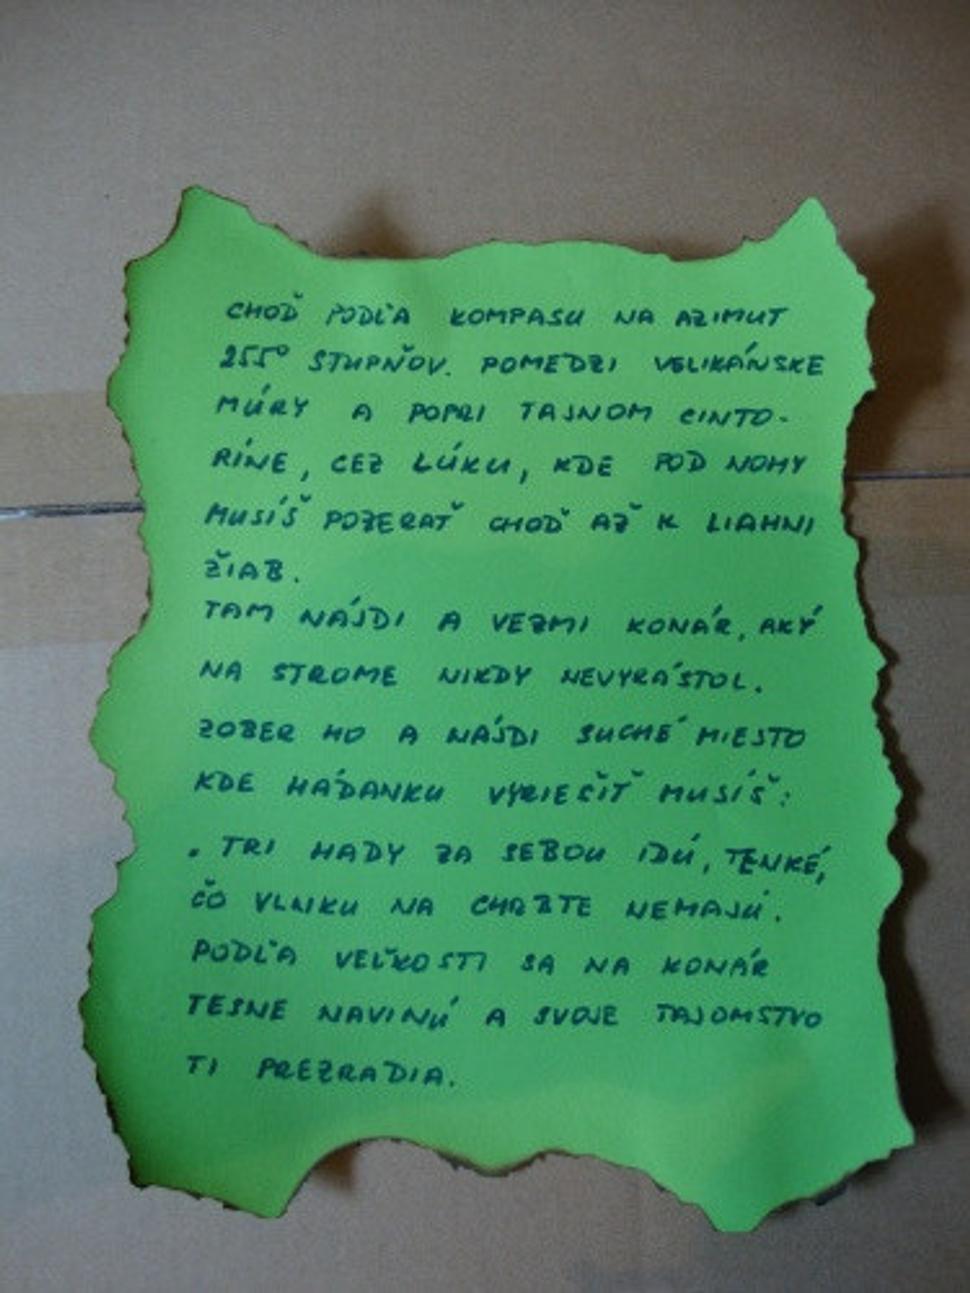 CHOĎ PODĽA KOMPASU NA AZIMUT
255° STUPŇOV. POMEDZI VELIKÁNSKE
MÚRY A POPRI TAJNOM CINTO-
RÍNE, CEZ LÚKU, KDE POD NOHY
MUSÍŠ POZERAŤ CHOĎ AŽ K LIAHNI
ŽIAB.
TAM NÁJDI A VEZMI KONÁR, AKÝ
NA STROME NIKDY NEVYRÁSTOL.
ZOBER HO A NÁJDI SUCHÉ MIESTO
KDE HÁDANKU VYRIEŠIŤ MUSÍŠ:
"TRI HADY ZA SEBOU IDÚ, TENKÉ,
ČO VLNKU NA CHRBTE NEMAJÚ.
PODĽA VEĽKOSTI SA NA KONÁR
TESNE NAVINÚ A SVOJE TAJOMSTVO
TI PREZRADIA.